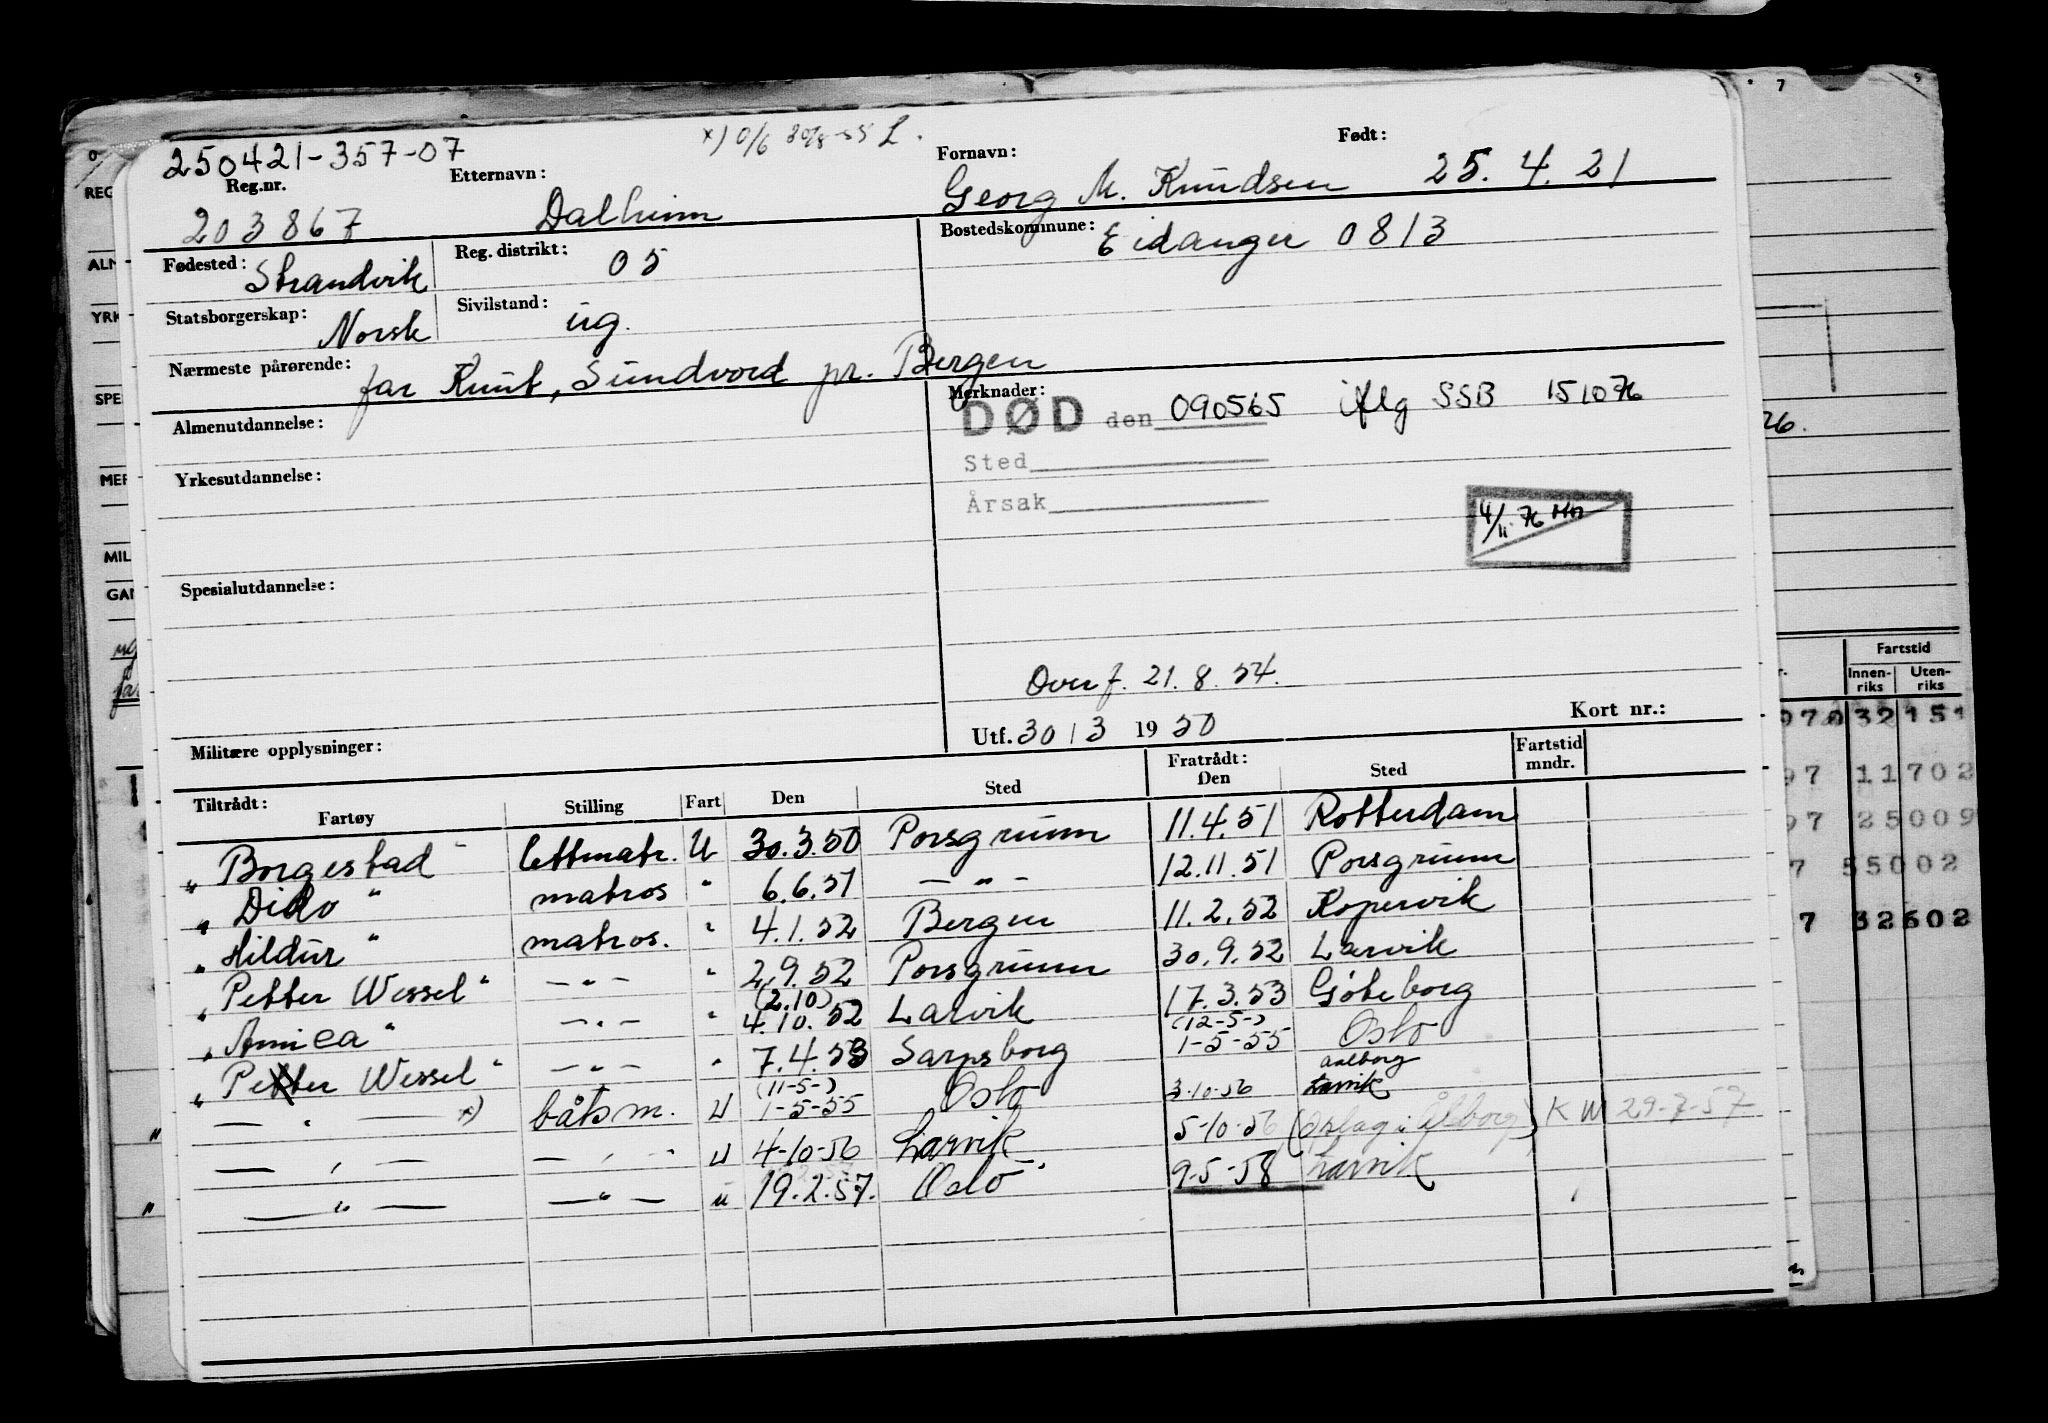 250421-357-07
x) 0/6 30/8-55 L.
Reg.nr. Etternavn: Fornavn: Født:
203867 Dalheim Georg M. Knudsen 25. 4. 21
Fødested: Strandvik Reg. distrikt: 05 Bostedskommune: Eidanger 0813
Statsborgerskap: Norsk Sivilstand: ug.
Nærmeste pårørende: far Knut, Sundvord pr. Bergen
Almenutdannelse: Merknader:
DØD den 090565 iflg SSB 151076
Sted
Yrkesutdannelse: Årsak
4/11 76
Spesialutdannelse:
Overf. 21. 8. 54.
Militære opplysninger: Utf. 30/3 1950 Kort nr.:
Tiltrådt: Fratrådt: Fartstid mndr.
Fartøy Stilling Fart Den Sted Den Sted
"Borgestad" lettmatr. U 30.3.50 Porsgrunn 11.4.51 Rotterdam
"Dido" matros " 6.6.51 — " — 12.11.51 Porsgrunn
"Hildur" matros. " 4.1.52 Bergen 11.2.52 Kopervik
"Petter Wessel" — " — " 2.9.52 Porsgrunn 30.9.52 Larvik
"Amica" — " — " (2.10) 4.10.52 Larvik 17.3.53 Göteborg
"Petter Wessel" — " — " 7.4.53 Sarpsborg (12-5-) 1-5-55 Oslo
— " — x) båtsm. U (11-5-) 1-5-55 Oslo 3-10-56 Aalborg Larvik
— " — — " — U 4-10-56 Larvik 5-10-56 (Opslag i Ålborg) KW 29-7-57
— " — — " — u 19.2.57. Oslo 9-5-58 Larvik
REG
ALM
YRK
SPE
MER
MIL
GAN
ug
far
7
9
26.
Fartstid
Innen-riks Uten-riks
970 32 151
97 11 702
97 25 009
7 55 002
7 32 602